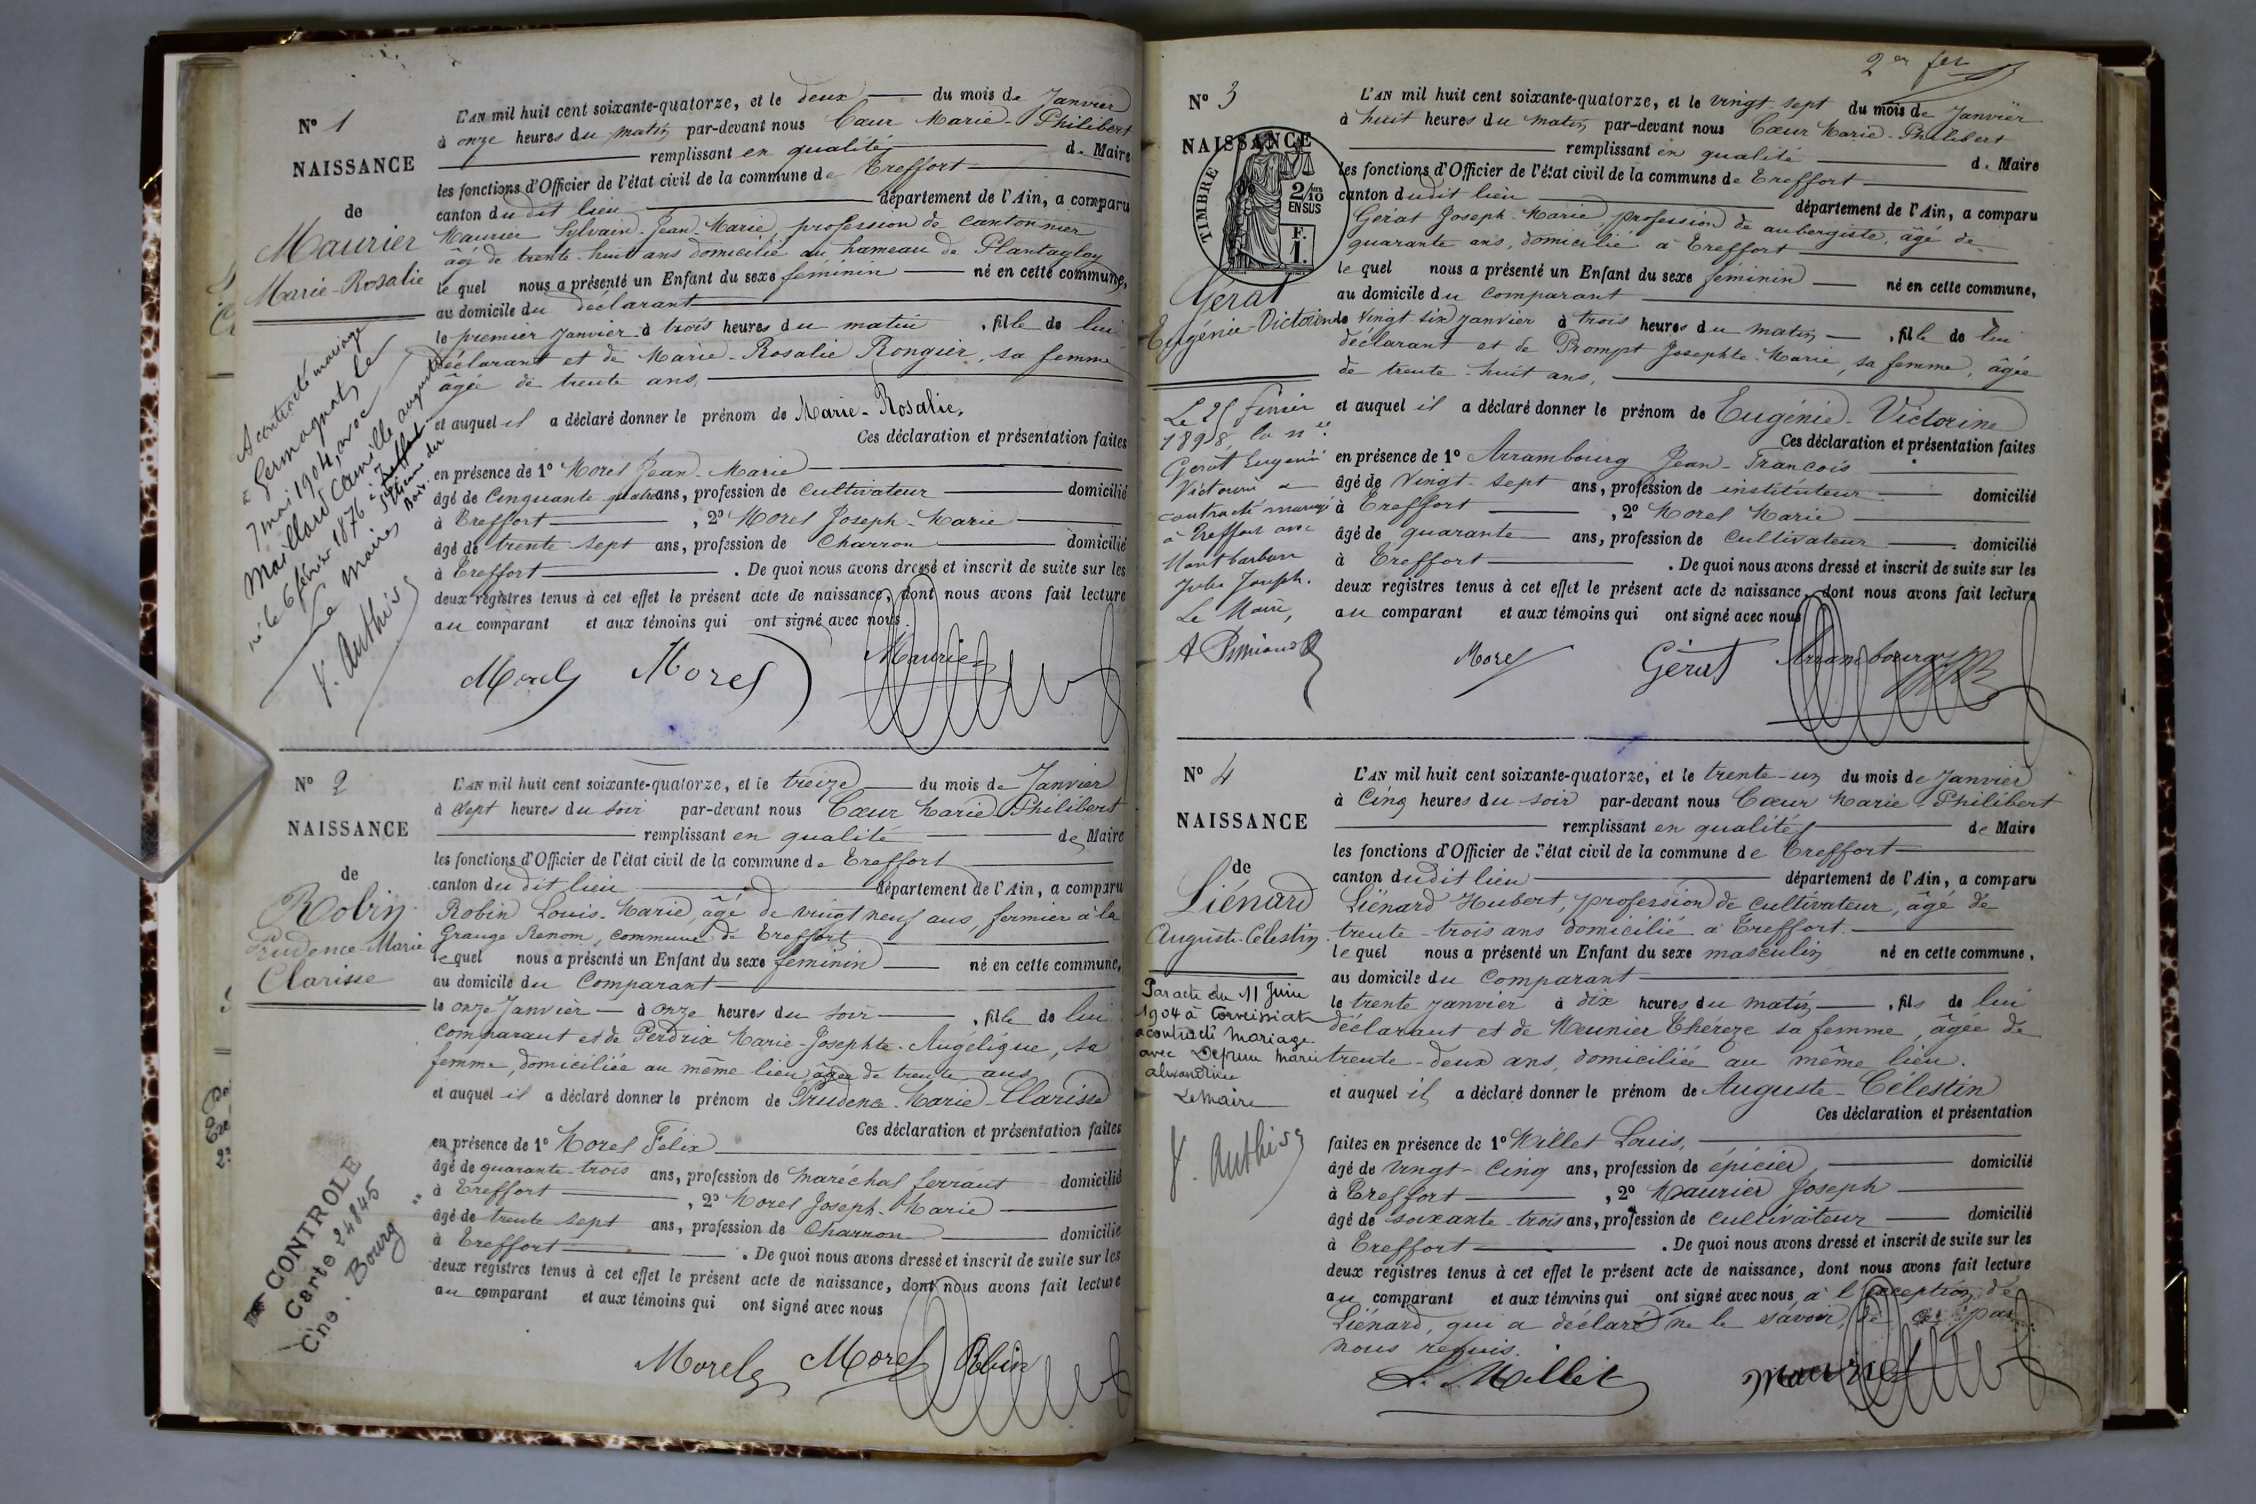 N° 1
NAISSANCE
de
Maurier
Marie-Rosalie
A contracté mariage
à Germagnat le
7 mai 1904, avec
Maillard Camille auguste
né le 6 février 1876 à Treffort
St Etienne du
Bois.
Le Maire
F. Authier
L'AN mil huit cent soixante-quatorze, et le deux du mois de Janvier
à onze heures du matin par-devant nous Cœur Marie-Philibert
remplissant en qualité de Maire
les fonctions d'Officier de l'état civil de la commune de Treffort
canton du dit lieu département de l'Ain, a comparu
Maurier Sylvain-Jean-Marie, profession de cantonnier
âgé de trente-huit ans domicilié au hameau de Plantaglay
le quel nous a présenté un Enfant du sexe féminin né en cette commune,
au domicile du déclarant
le premier Janvier à trois heures du matin , fille de lui
déclarant et de Marie-Rosalie Rongier, sa femme
âgée de trente ans,
et auquel il a déclaré donner le prénom de Marie-Rosalie,
Ces déclaration et présentation faites
en présence de 1° Morel Jean-Marie
âgé de cinquante quatre ans, profession de cultivateur domicilié
à Treffort , 2° Morel Joseph-Marie
âgé de trente sept ans, profession de Charron domicilié
à Treffort . De quoi nous avons dressé et inscrit de suite sur les
deux registres tenus à cet effet le présent acte de naissance, dont nous avons fait lecture
au comparant et aux témoins qui ont signé avec nous.
Morel Morel Maurier
N° 2
NAISSANCE
de
Robin
Prudence-Marie
Clarisse
CONTROLE
Carte 24845
Cne. Bourg
L'AN mil huit cent soixante-quatorze, et le treize du mois de Janvier
à sept heures du soir par-devant nous Cœur Marie Philibert
remplissant en qualité de Maire
les fonctions d'Officier de l'état civil de la commune de Treffort
canton du dit lieu département de l'Ain, a comparu
Robin Louis-Marie, âgé de vingt neuf ans, fermier à la
Grange Renom, commune de Treffort
le quel nous a présenté un Enfant du sexe féminin né en cette commune,
au domicile du Comparant
le onze Janvier à onze heures du soir , fille de lui
comparant et de Perdrix Marie-Josephte-Angélique, sa
femme, domiciliée au même lieu, âgée de trente ans
et auquel il a déclaré donner le prénom de Prudence-Marie-Clarisse
Ces déclaration et présentation faites
en présence de 1° Morel Félix
âgé de quarante-trois ans, profession de maréchal ferrant domicilié
à Treffort , 2° Morel Joseph-Marie
âgé de trente sept ans, profession de Charron domicilié
à Treffort . De quoi nous avons dressé et inscrit de suite sur les
deux registres tenus à cet effet le présent acte de naissance, dont nous avons fait lecture
au comparant et aux témoins qui ont signé avec nous
Morel Morel Robin
N° 3
NAISSANCE
TIMBRE
2/10
EN SUS
F.
1.
Gérat
Eugénie-Victorine
Le 25 février
1898, la née
Gerat Eugénie
Victorine a
contracté mariage
à Treffort avec
Montbarbon
Jules Joseph.
Le Maire,
L'AN mil huit cent soixante-quatorze, et le vingt-sept du mois de Janvier
à huit heures du matin par-devant nous Cœur Marie-Philibert
remplissant en qualité de Maire
les fonctions d'Officier de l'état civil de la commune de Treffort
canton dudit lieu département de l'Ain, a comparu
Gérat Joseph-Marie, profession de aubergiste, âgé de
quarante ans, domicilié à Treffort
le quel nous a présenté un Enfant du sexe féminin né en cette commune,
au domicile du comparant
le vingt-six Janvier à trois heures du matin , fille de lui
déclarant et de Prompt Josephte-Marie, sa femme, âgée
de trente-huit ans,
et auquel il a déclaré donner le prénom de Eugénie-Victorine
Ces déclaration et présentation faites
en présence de 1° Arrambourg Jean-François
âgé de vingt-sept ans, profession de instituteur domicilié
à Treffort , 2° Morel Marie
âgé de quarante ans, profession de cultivateur domicilié
à Treffort . De quoi nous avons dressé et inscrit de suite sur les
deux registres tenus à cet effet le présent acte de naissance, dont nous avons fait lecture
au comparant et aux témoins qui ont signé avec nous
Morel Gérat Arrambourg
N° 4
NAISSANCE
de
Liénard
Auguste-Célestin
Par acte du 11 Juin
1904 à Corveissiat
a contracté mariage
avec Marie
Alexandrine
Le Maire
F. Authier
L'AN mil huit cent soixante-quatorze, et le trente-un du mois de Janvier
à Cinq heures du soir par-devant nous Cœur Marie-Philibert
remplissant en qualité de Maire
les fonctions d'Officier de l'état civil de la commune de Treffort
canton dudit lieu département de l'Ain, a comparu
Liénard Hubert, profession de cultivateur, âgé de
trente-trois ans domicilié à Treffort.
le quel nous a présenté un Enfant du sexe masculin né en cette commune,
au domicile du Comparant
le trente Janvier à dix heures du matin , fils de lui
déclarant et de Meunier Thérèze sa femme, âgée de
trente-deux ans, domiciliée au même lieu.
et auquel il a déclaré donner le prénom de Auguste-Célestin
Ces déclaration et présentation
faites en présence de 1° Millet Louis,
âgé de vingt-cinq ans, profession de épicier, domicilié
à Treffort , 2° Maurier Joseph
âgé de soixante-trois ans, profession de cultivateur domicilié
à Treffort . De quoi nous avons dressé et inscrit de suite sur les
deux registres tenus à cet effet le présent acte de naissance, dont nous avons fait lecture
au comparant et aux témoins qui ont signé avec nous, à l'exception de
Liénard, qui a déclaré ne le savoir, de ce par
nous requis.
L. Millet Maurier